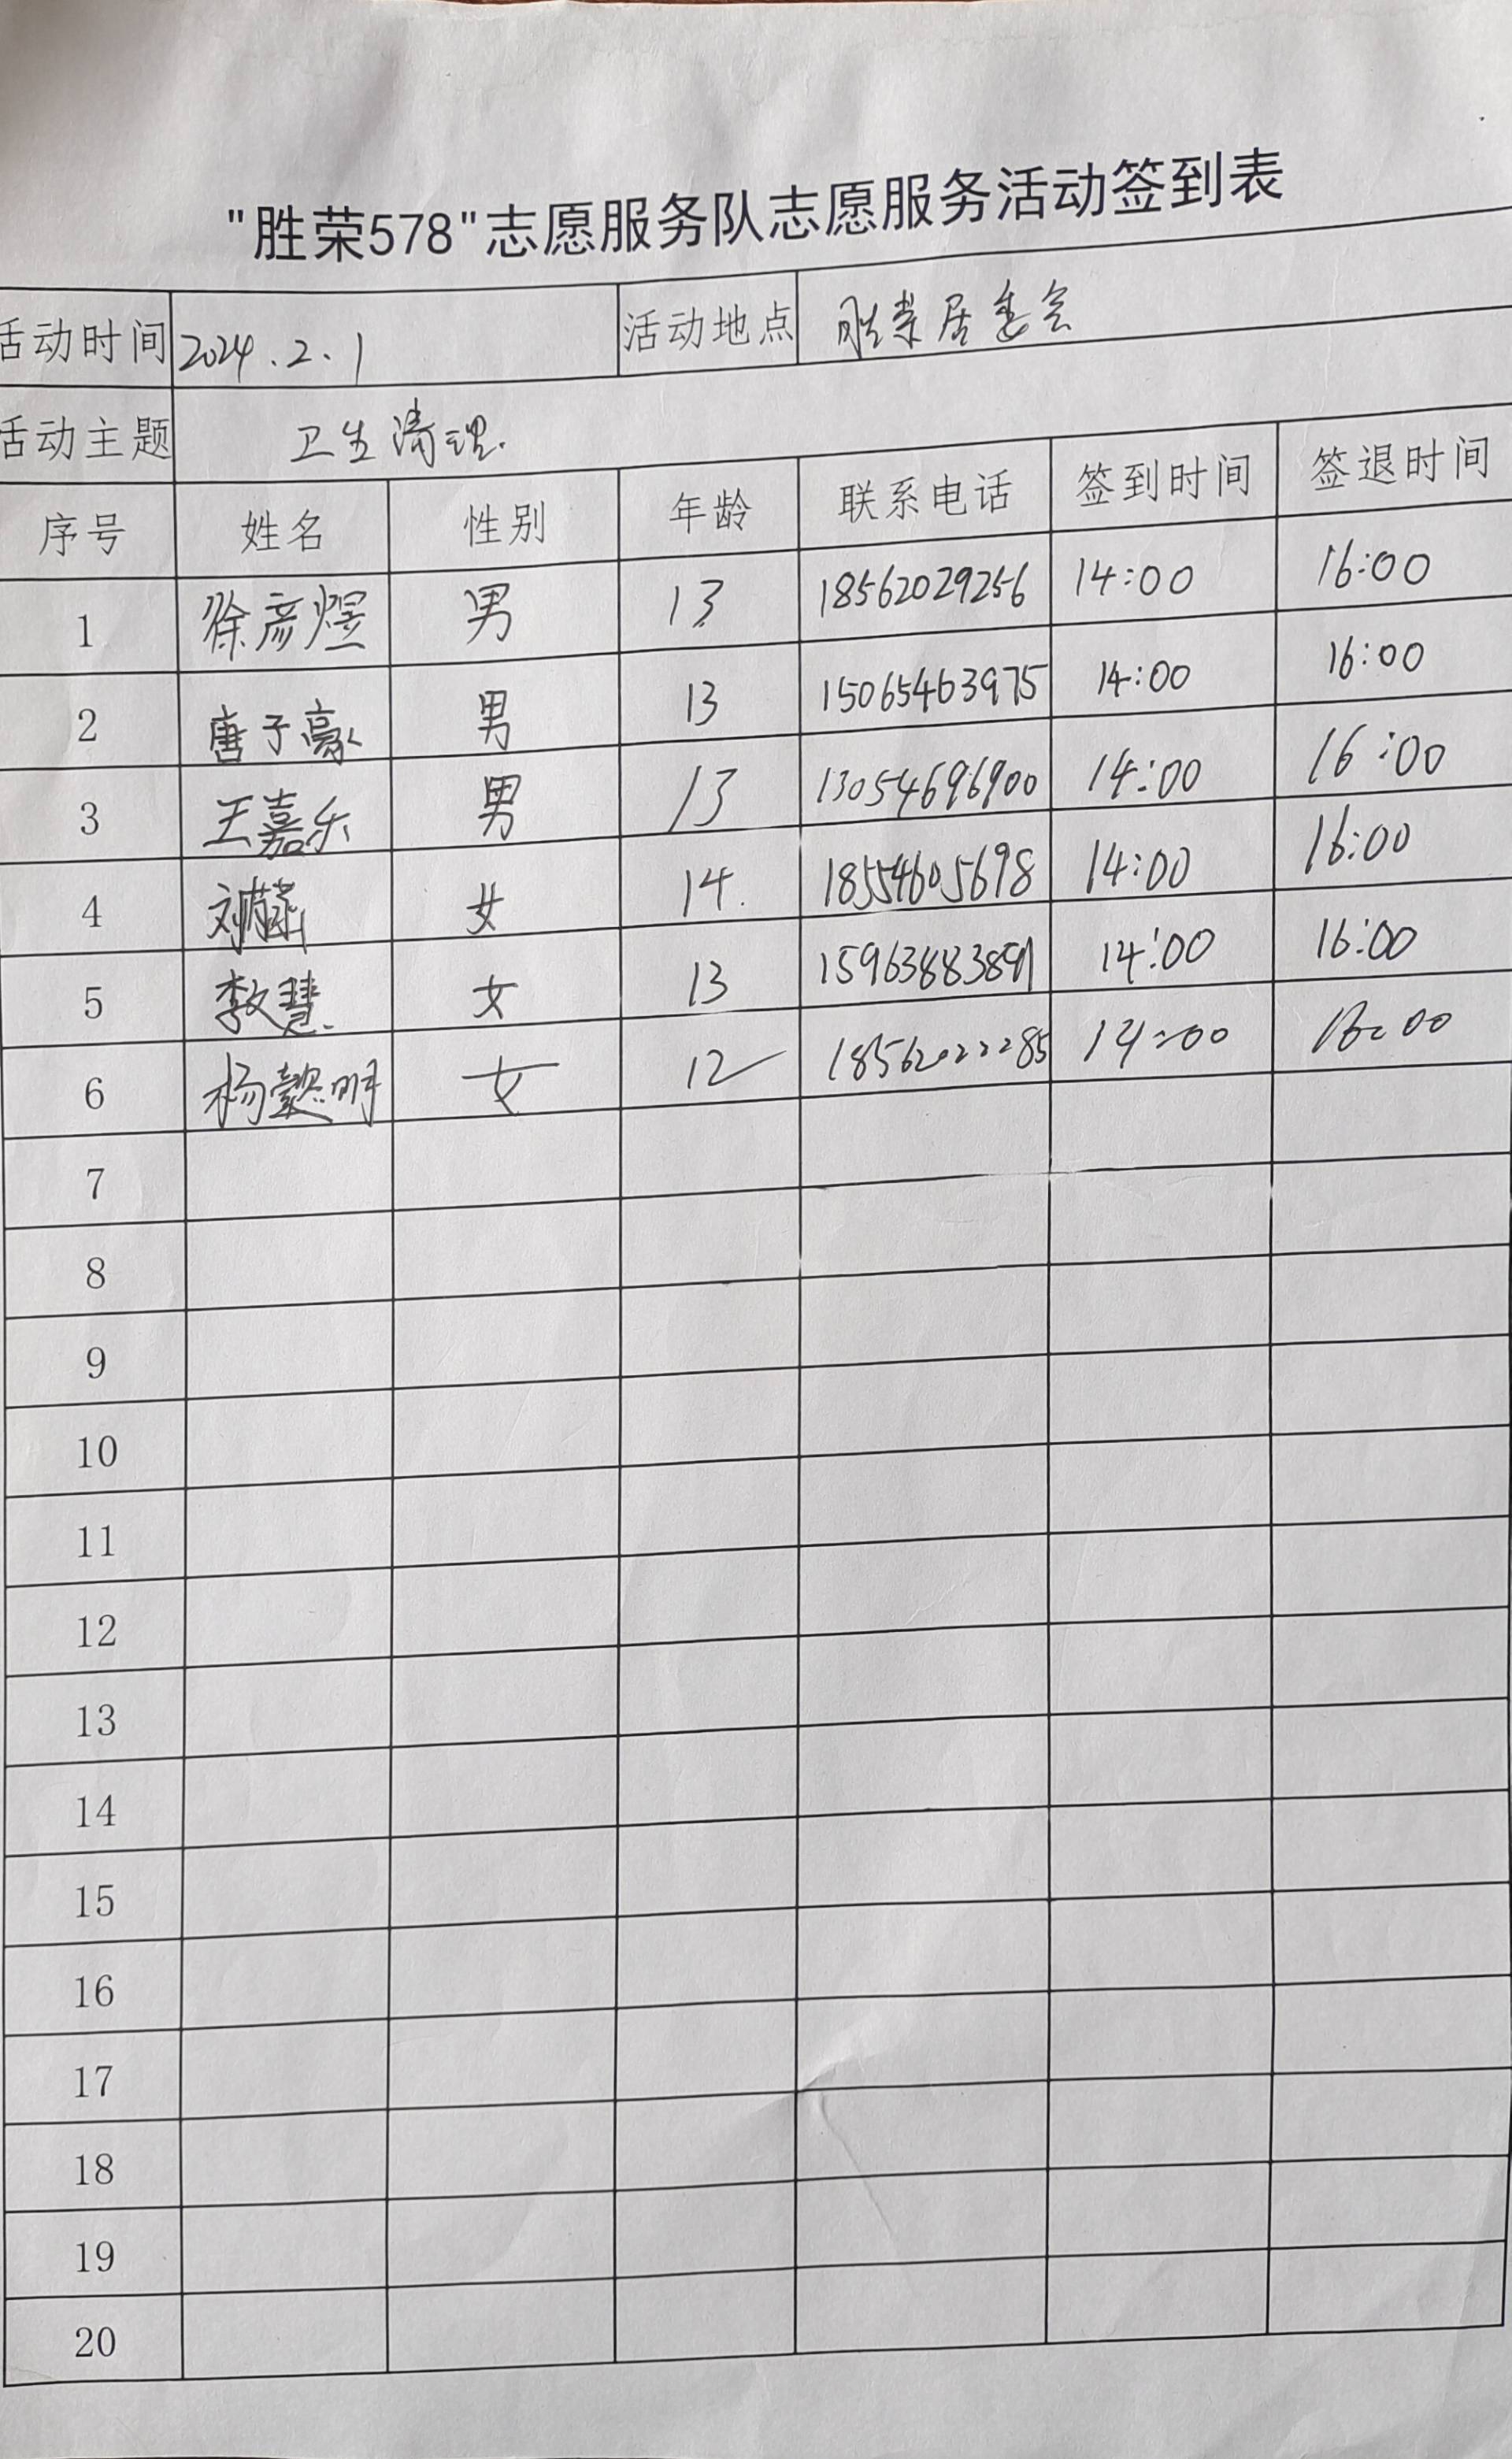 "胜荣578"志愿服务队志愿服务活动签到表
活动时间 2024.2.1 活动地点 胜荣居委会
活动主题 卫生清理.
序号 姓名 性别 年龄 联系电话 签到时间 签退时间
1 徐彦煜 男 13 18562029256 14:00 16:00
2 唐子豪 男 13 15065463975 14:00 16:00
3 王嘉乐 男 13 13054696900 14:00 16:00
4 女 14. 18554605698 14:00 16:00
5 李文慧. 女 13 14:00 16:00
6 杨懿明 女 12 18562022285 14:00 16:00
7
8
9
10
11
12
13
14
15
16
17
18
19
20